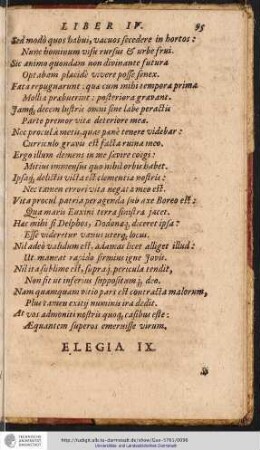 LIBER IV. 95
Sed modò quos habui, vacuos secedere in hortos:
Nunc hominum visu rursus & urbe frui.
Sic animo quondam non divinante futura
Optabam placidè vivere posse senex.
Fata repugnarunt: quæ cum mihi tempora prima
Mollia præbuerint: posteriora gravant.
Jamq; decem lustris omni sine labe peractis
Parte premor vitæ deteriore meæ.
Nec procul à metis, quas penè tenere videbar:
Curriculo gravis est facta ruina meo.
Ergo illum demens in me sævire coëgi:
Mitius immensus quo nihil orbis habet.
Ipsaq; delictis victa est clementia nostris:
Nec tamen errori vita negata meo est.
Vita procul patriâ peragenda sub axe Boreo est:
Qua maris Euxini terra sinistra jacet.
Hæc mihi si Delphos, Dodonaq; diceret ipsa:
Esse videretur vanus uterq; locus.
Nil adeò validum est, adamas licet alliget illud:
Ut maneat rapido firmius igne Jovis.
Nil ita sublime est, supraq; pericula tendit,
Non sit ut inferius suppositumq; deo.
Nam quamquam vitio pars est contracta malorum,
Plus tamen exitij numinis ira dedit.
At vos admoniti nostris quoq; casibus este:
Æquantem superos emeruisse virum.
ELEGIA IX.
TECHNISCHE UNIVERSITÄT DARMSTADT
http://tudigit.ulb.tu-darmstadt.de/show/Gue-5781/0096
Universitäts- und Landesbibliothek Darmstadt